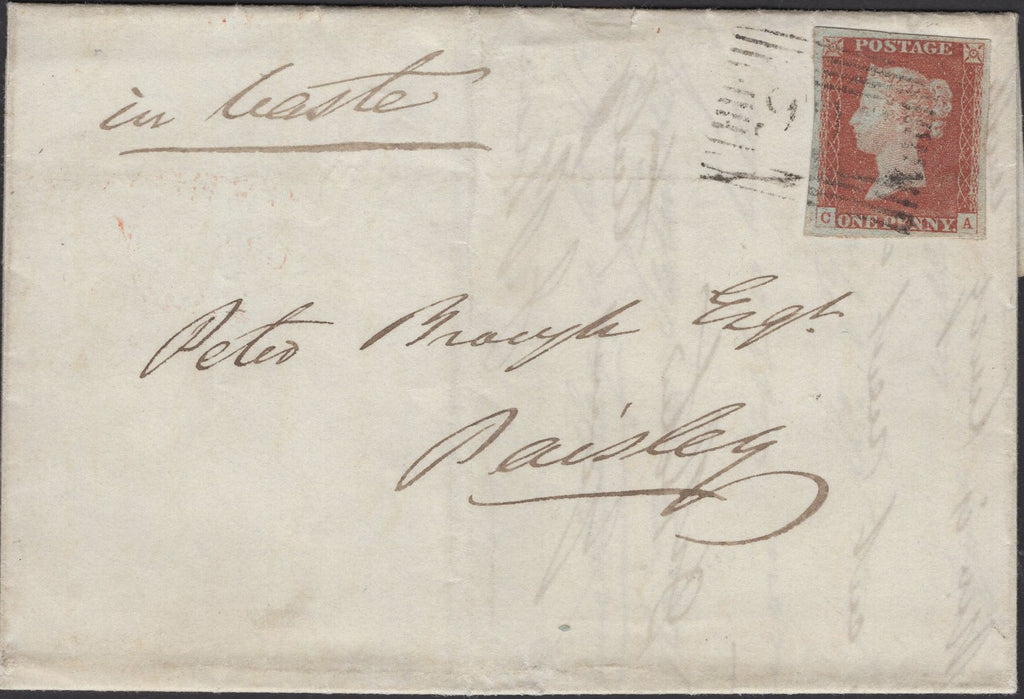 in haste
POSTAGE
C ONE PENNY. A
Peter Brough Esqr.
Paisley